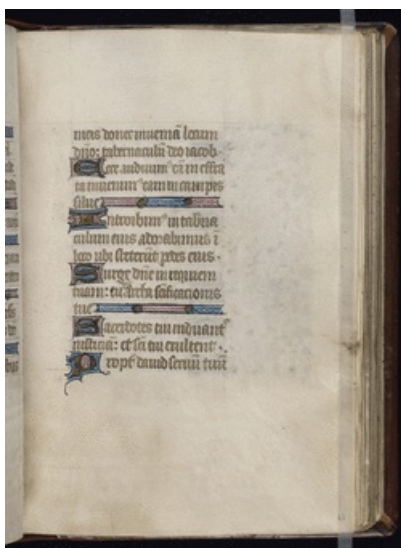 meis donec inueniā locum
dño: tabernaculū deo iacob·
Ecce audiuim⁹ eā in effra
ta inuenim⁹ eam in campis
silue
Introibim⁹ in taberna
culum eius adorabimus ī
loco ubi steterūt pedes eius·
Surge dñe in requiem
tuam: tu ⁊ archa scificacionis
tue
Sacerdotes tui induant᷑
iusticiā: et sci tui exultent·
Propt̄ dauid seruū tuū